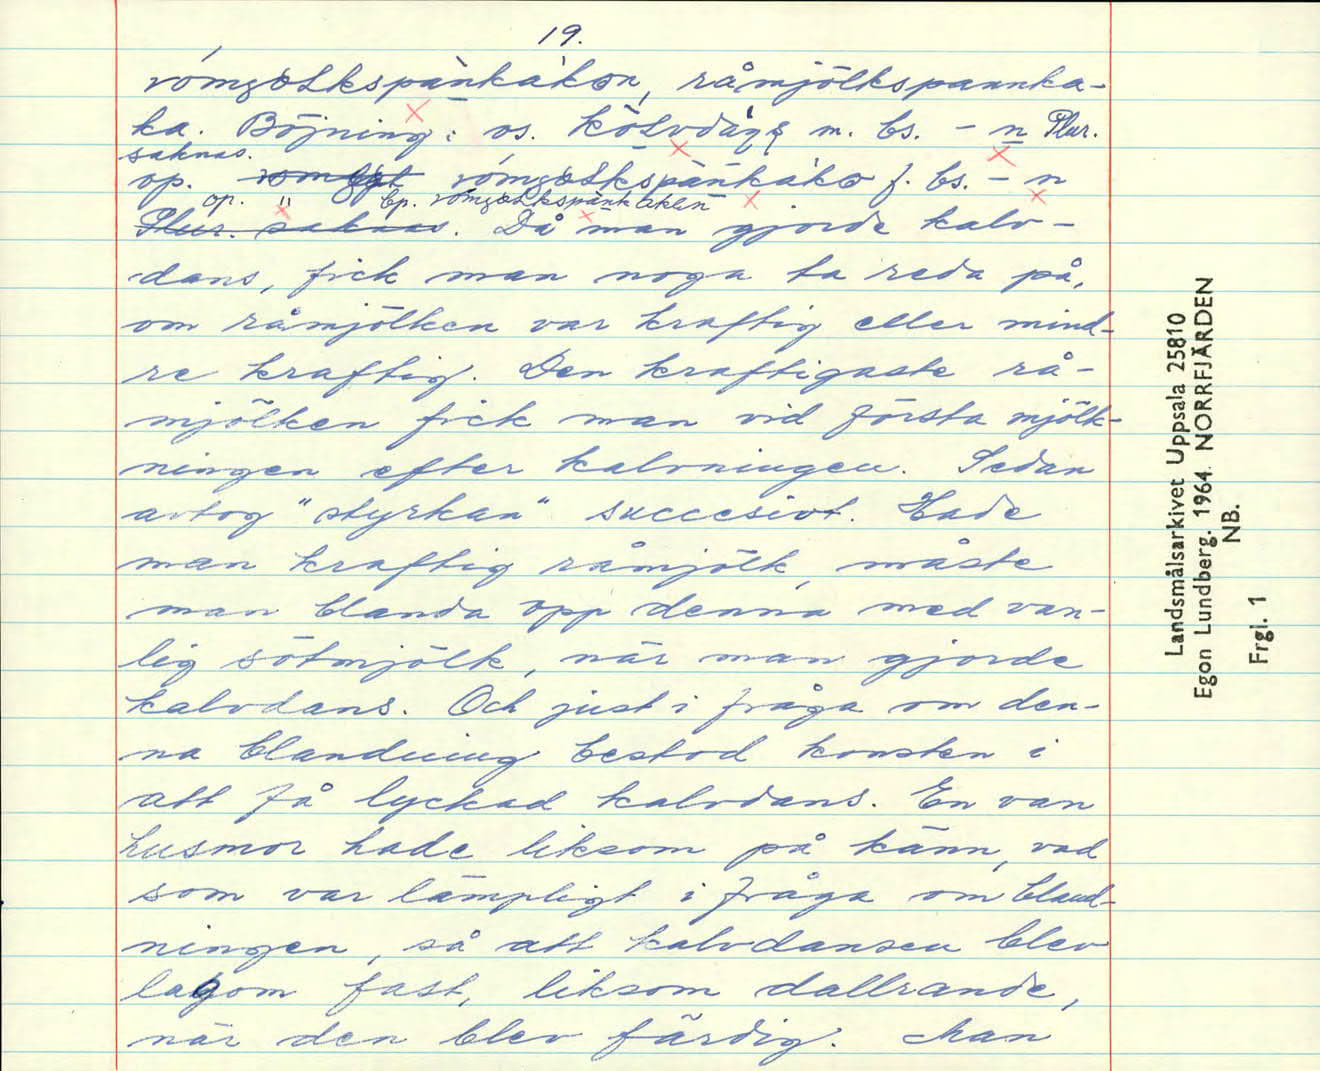 19.
rómgølkspànkakøn, råmjölkspannka-
ka. Böjning: os. kölvdàns m. bs. - n Plur.
saknas.
op. romgøl rómgølkspànkakø f. bs. - n
op. " bp. rómgølkspànkaken
Plur. saknas. Då man gjorde kalv-
dans, fick man noga ta reda på,
om råmjölken var kraftig eller mind-
re kraftig. Den kraftigaste rå-
mjölken fick man vid första mjölk-
ningen efter kalvningen. Sedan
avtog "styrkan" succesivt. Hade
man kraftig råmjölk, måste
man blanda opp denna med van-
lig sötmjölk, när man gjorde
kalvdans. Och just i fråga om den-
na blandning bestod konsten i
att få lyckad kalvdans. En van
husmor hade liksom på känn, vad
som var lämpligt i fråga om bland-
ningen, så att kalvdansen blev
lagom fast, liksom dallrande,
när den blev färdig. Man
Landsmålsarkivet Uppsala 25810
Egon Lundberg. 1964. NORRFJÄRDEN
NB.
Frgl. 1